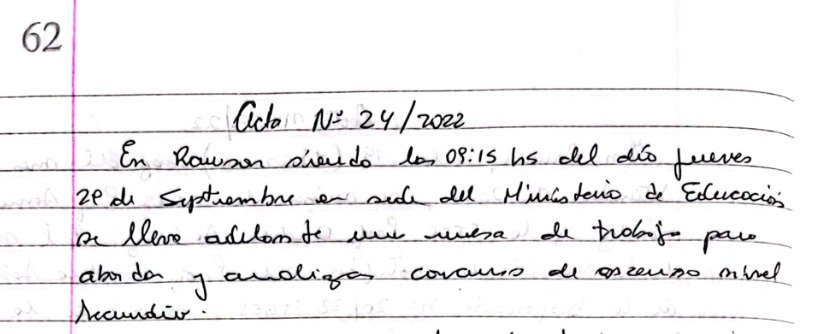 62
Acta Nº 24/2022
En Rawson siendo las 09:15 hs del día jueves
29 de Septiembre en sede del Ministerio de Educación
se lleva adelante una mesa de trabajo para
abordar y analizar concurso de ascenso nivel
Secundario.